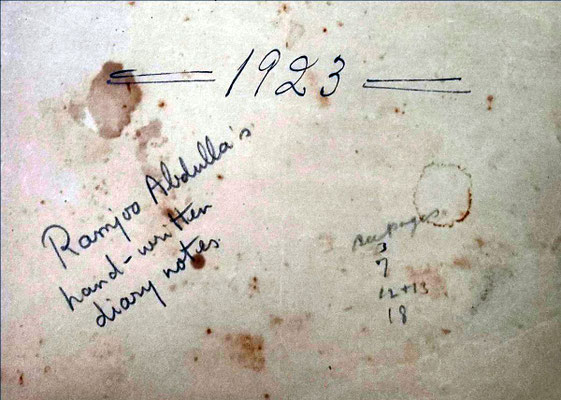 1923
Ramjoo Abdulla's
hand-written
diary notes.
see pages
3
7
12+13
18